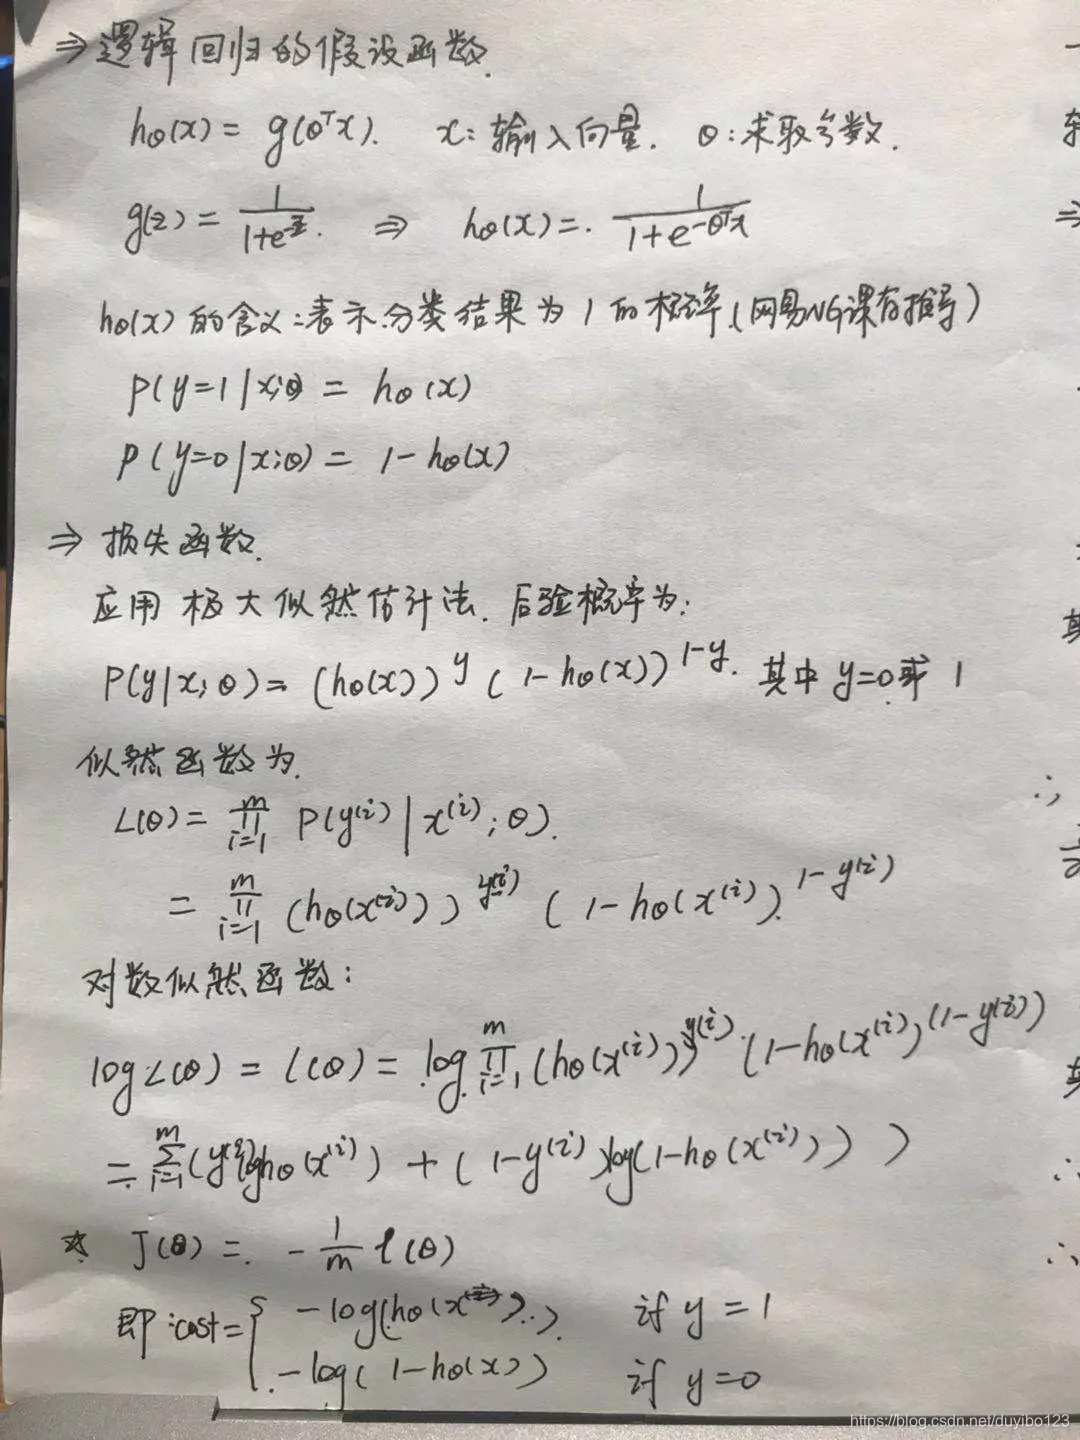 ⇒ 逻辑回归的假设函数.
hθ(x) = g(θᵀx). x: 输入向量. θ: 求取参数.
g(z) = 1/(1+e^z). ⇒ hθ(x) = 1/(1+e^(-θᵀx))
hθ(x) 的含义: 表示分类结果为 1 的概率 (网易NG课有推导)
P(y=1|x;θ) = hθ(x)
P(y=0|x;θ) = 1-hθ(x)
⇒ 损失函数.
应用 极大似然估计法. 后验概率为:
P(y|x;θ) = (hθ(x))^y (1-hθ(x))^(1-y). 其中 y=0或 1
似然函数为.
L(θ) = ∏_{i=1}^{m} P(y^(i) | x^(i); θ).
= ∏_{i=1}^{m} (hθ(x^(i)))^y^(i) (1-hθ(x^(i))^1-y^(i)
对数似然函数:
log L(θ) = l(θ) = log ∏_{i=1}^{m} (hθ(x^(i)))^y^(i) (1-hθ(x^(i))^(1-y^(i))
= ∑_{i=1}^{m} (y^(i) log hθ(x^(i)) + (1-y^(i)) log(1-hθ(x^(i))) )
☆ J(θ) = -1/m l(θ)
即: cost = { -log(hθ(x)) if y = 1
-log(1-hθ(x)) if y=0
轴
⇒
其
∴
∴
∴
https://blog.csdn.net/duyibo123